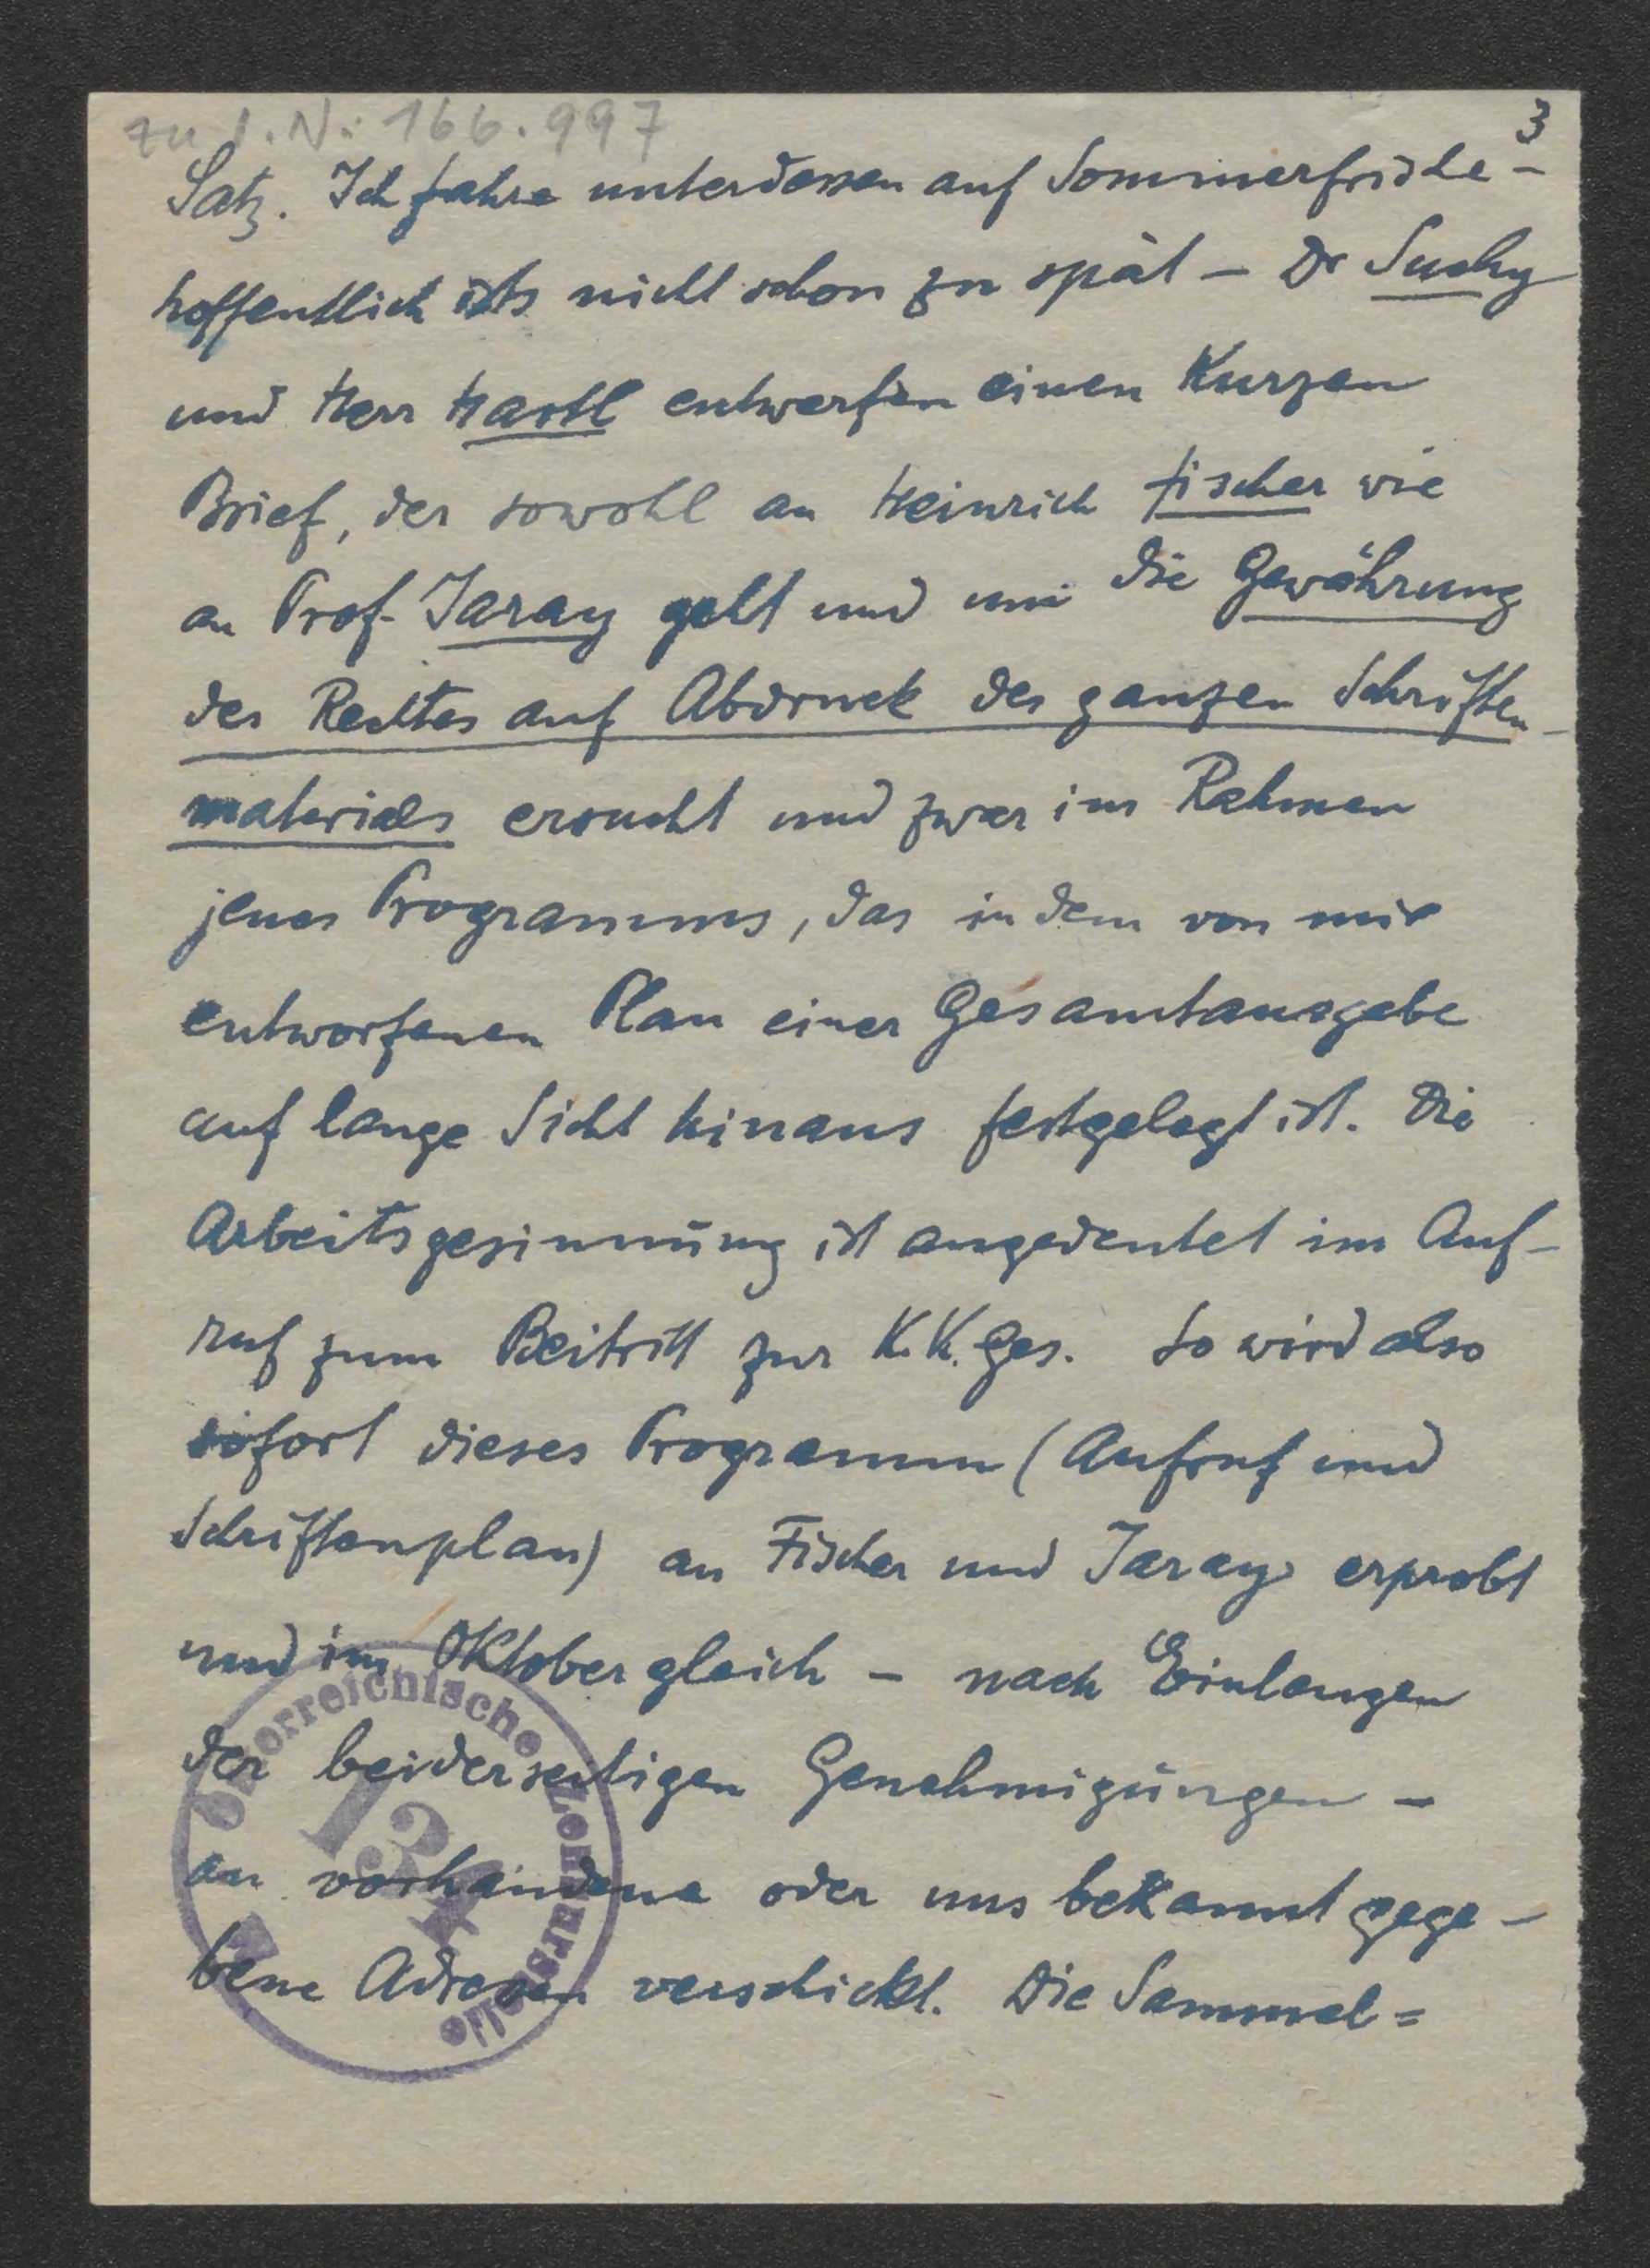 zu I.N.: 166.997
3
Satz. Ich fahre unterdessen auf Sommerfrische –
hoffentlich ists nicht schon zu spät – Dr Suchy
und Herr Hartl entwerfen einen Kurzen
Brief, der sowohl an Heinrich Fischer wie
an Prof. Jaray geht und um die Gewährung
des Rechtes auf Abdruck des ganzen Schriften-
materials ersucht und zwar im Rahmen
jenes Programms, das in dem von mir
entworfenen Plan einer Gesamtausgabe
auf lange Sicht hinaus festgelegt ist. Die
Arbeitsgesinnung ist angedeutet im Auf-
ruf zum Beitritt zur K.K.Ges. So wird also
sofort dieses Programm (Aufruf und
Schriftenplan) an Fischer und Jaray erprobt
und im Oktober gleich – nach Einlangen
der beiderseitigen Genehmigungen –
an vorhandene oder uns bekannt gege-
bene Adressen verschickt. Die Sammel=